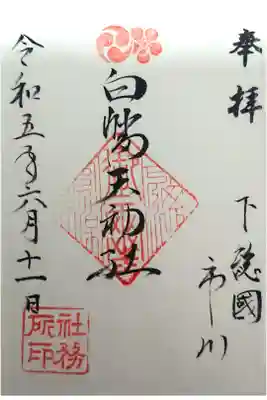 奉拝
下總國
市川
白幡天神社
令和五年六月十一日
社務
所印